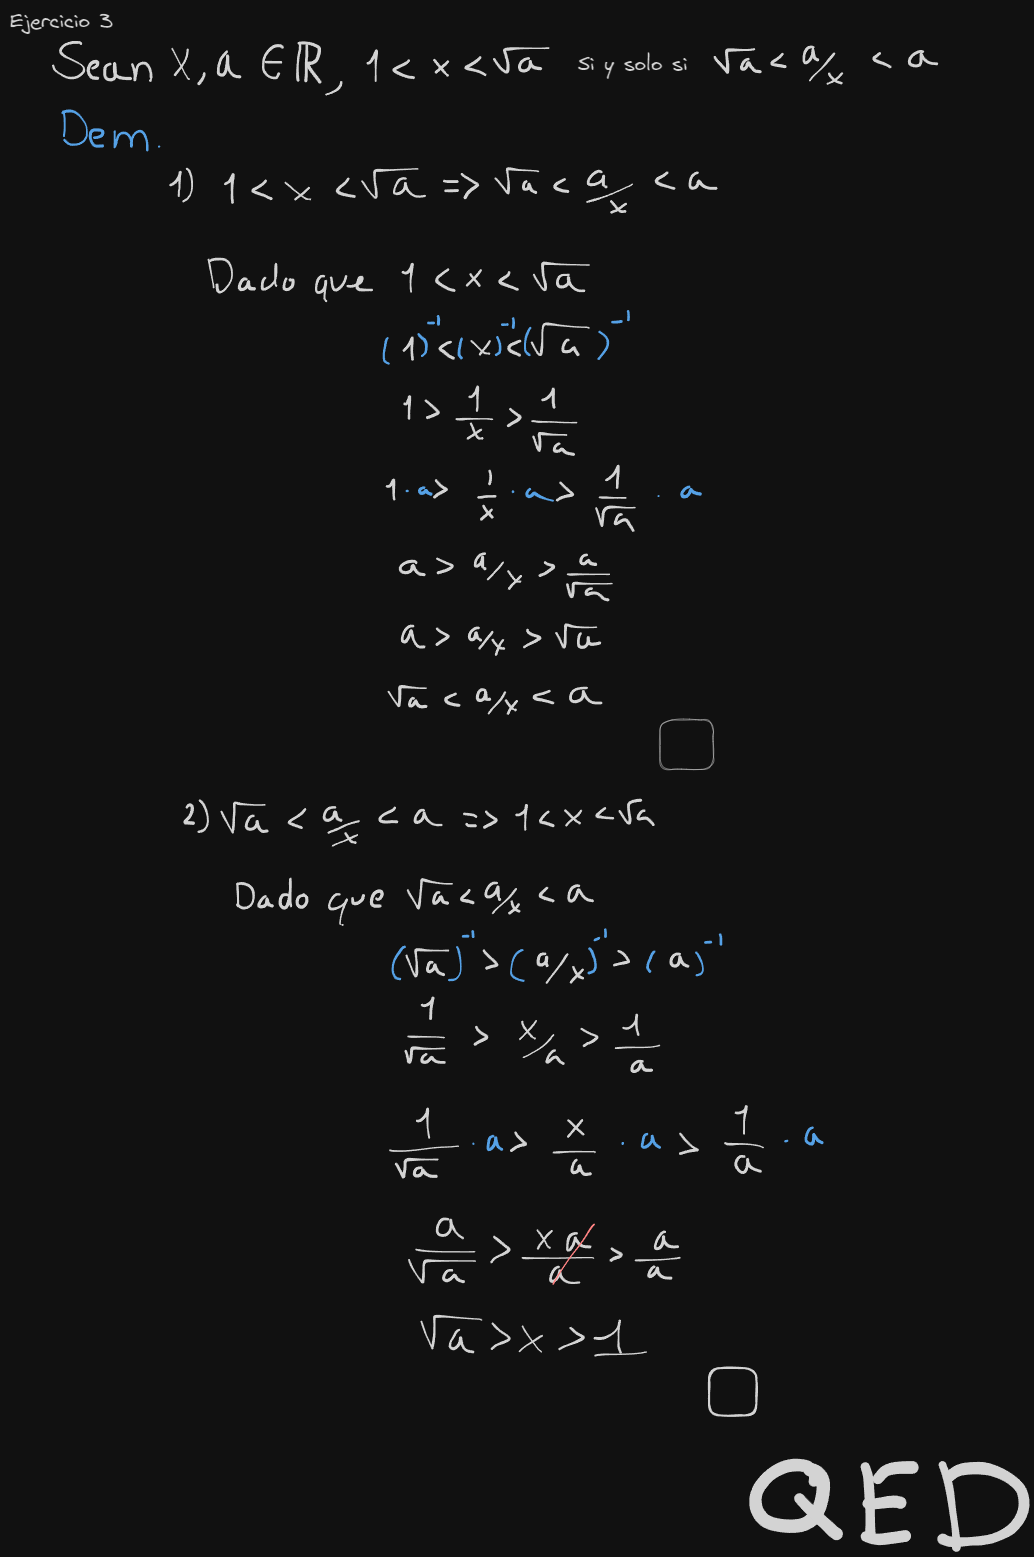 Ejercicio 3
Sean X, a ∈ ℝ, 1 < x < √a si y solo si √a < a/x < a
Dem.
1) 1 < x < √a => √a < a/x < a
Dado que 1 < x < √a
(1)⁻¹ < (x)⁻¹ < (√a)⁻¹
1 > 1/x > 1/√a
1 · a > 1/x · a > 1/√a · a
a > a/x > a/√a
a > a/x > √a
√a < a/x < a
2) √a < a/x < a => 1 < x < √a
Dado que √a < a/x < a
(√a)⁻¹ > (a/x)⁻¹ > (a)⁻¹
1/√a > x/a > 1/a
1/√a · a > x/a · a > 1/a · a
a/√a > xa/a > a/a
√a > x > 1
QED